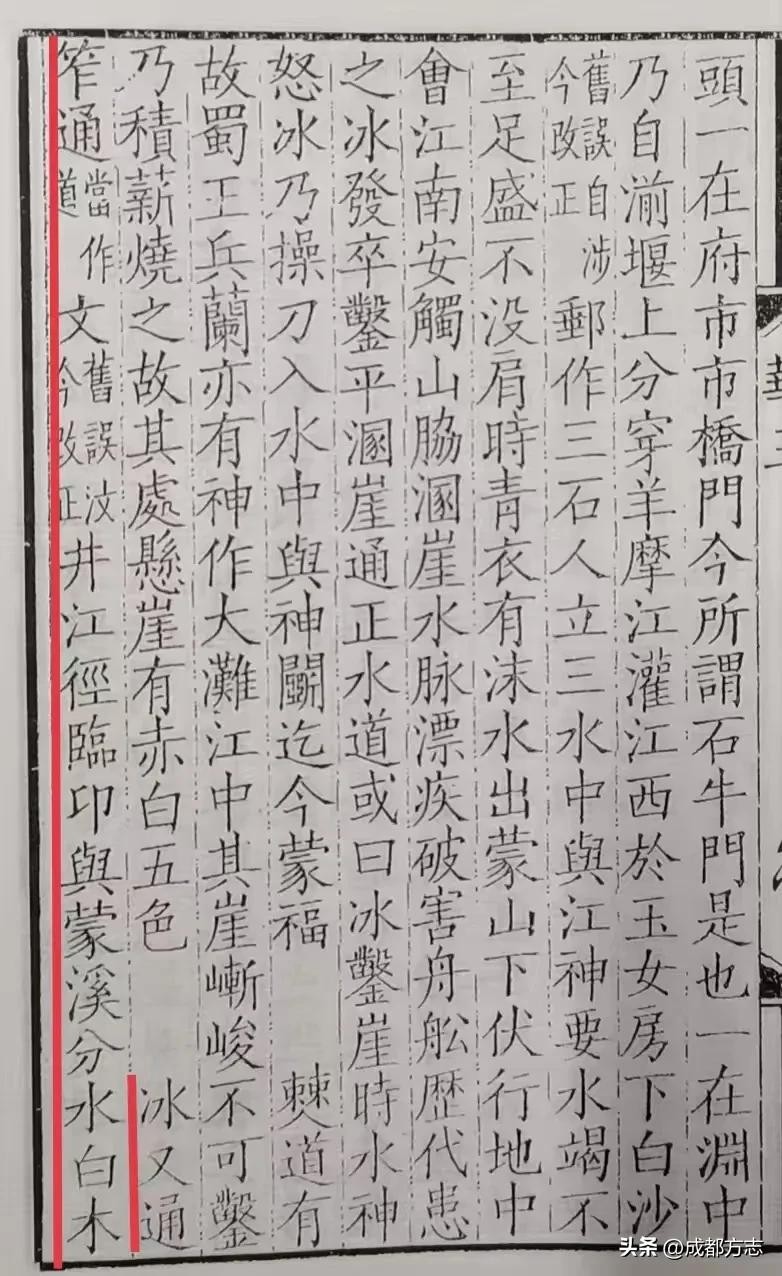 頭一在府市市橋門今所謂石牛門是也一在淵中
乃自湔堰上分穿羊摩江灌江西於玉女房下白沙
舊誤自涉今改正郵作三石人立三水中與江神要水竭不
至足盛不没肩時青衣有沫水出蒙山下伏行地中
會江南安觸山脇溷崖水脉漂疾破害舟舩歴代患
之冰發卒鑿平溷崖通正水道或曰冰鑿崖時水神
怒冰乃操刀入水中與神鬭迄今蒙福 僰道有
故蜀王兵蘭亦有神作大灘江中其崖嶃峻不可鑿
乃積薪燒之故其處懸崖有赤白五色 冰又通
笮通當作道文舊誤汶今改正井江徑臨卬與蒙溪分水白木
头条 @成都方志